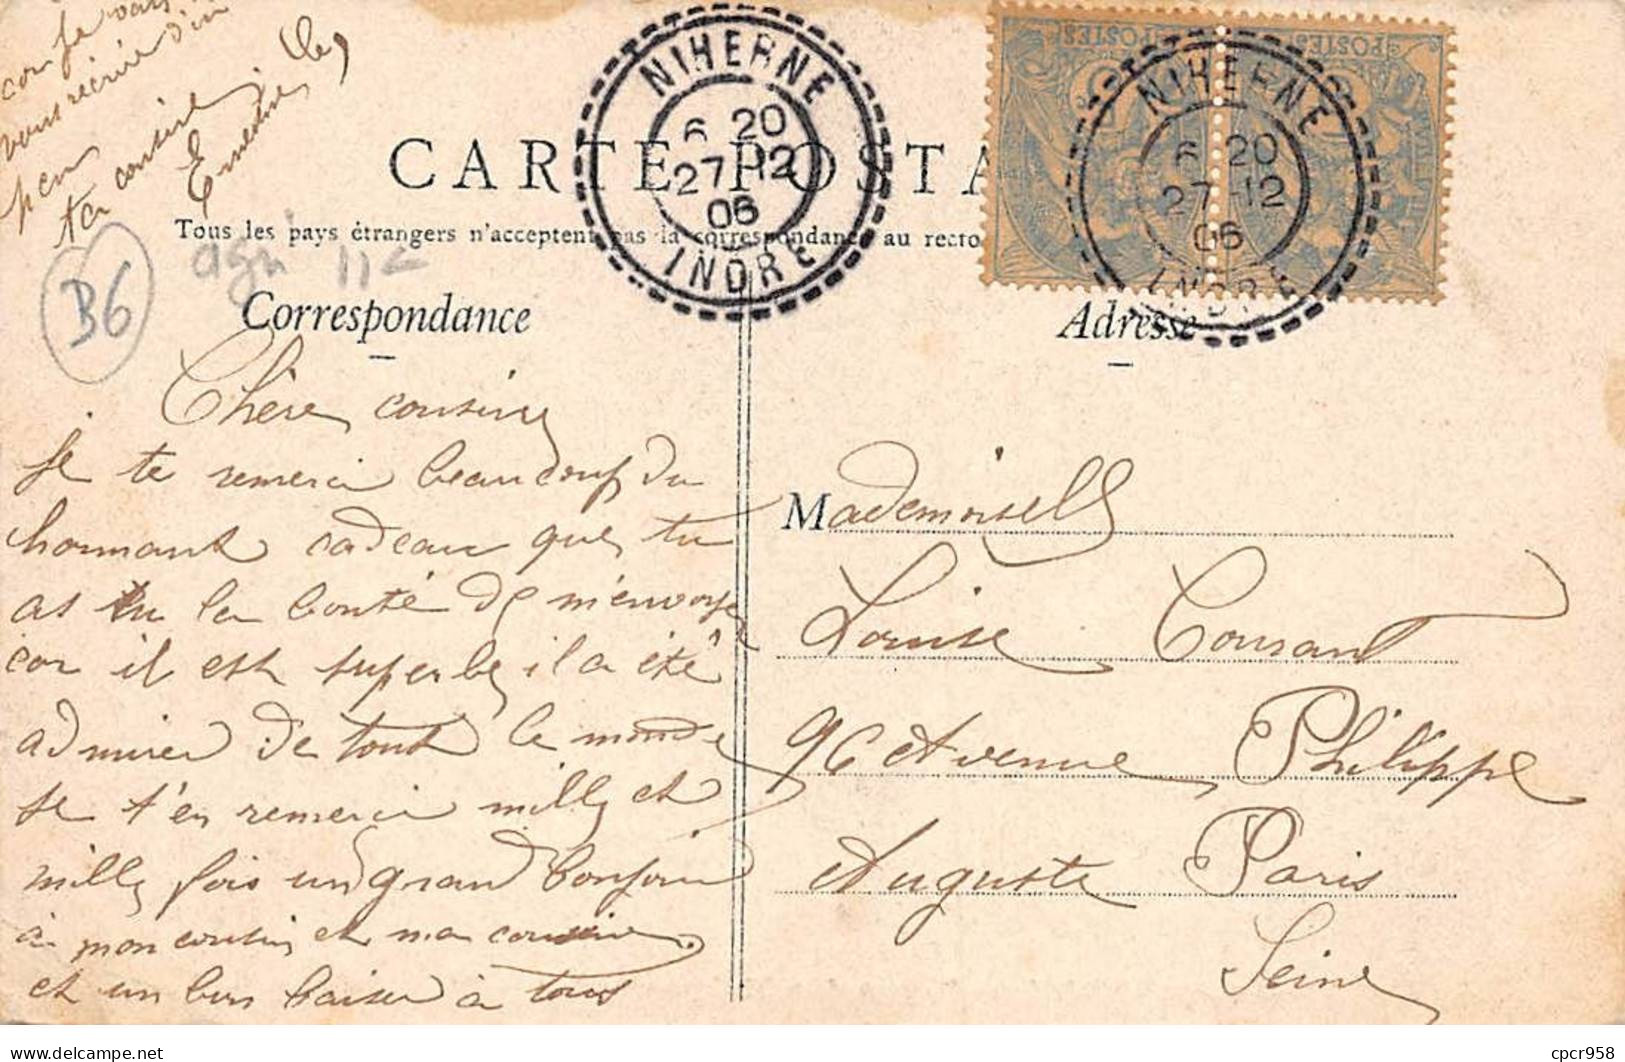 car je vais
vous récrire d'ici
peu
ta cousine
Ernestine
B6
NIHERNE
6 20
27 12
06
INDRE
POSTES
POSTES
NIHERNE
6 20
27-12
06
INDRE
CARTE POSTA
Tous les pays étrangers n'acceptent pas la correspondance au recto
11
Correspondance
Adresse
Chère cousine
Je te remerci beaucoup du
charmant cadeau que tu
as eu la bonté de m'envoyé
car il est superbe il a été
admirer de tout le monde
je t'en remerci mille et
mille fois un grand bonjour
à mon cousin et ma cousine
et un bon baiser à tous
Mademoiselle
Louise Courant
96 Avenue Philippe
Auguste Paris
Seine
cpcr958